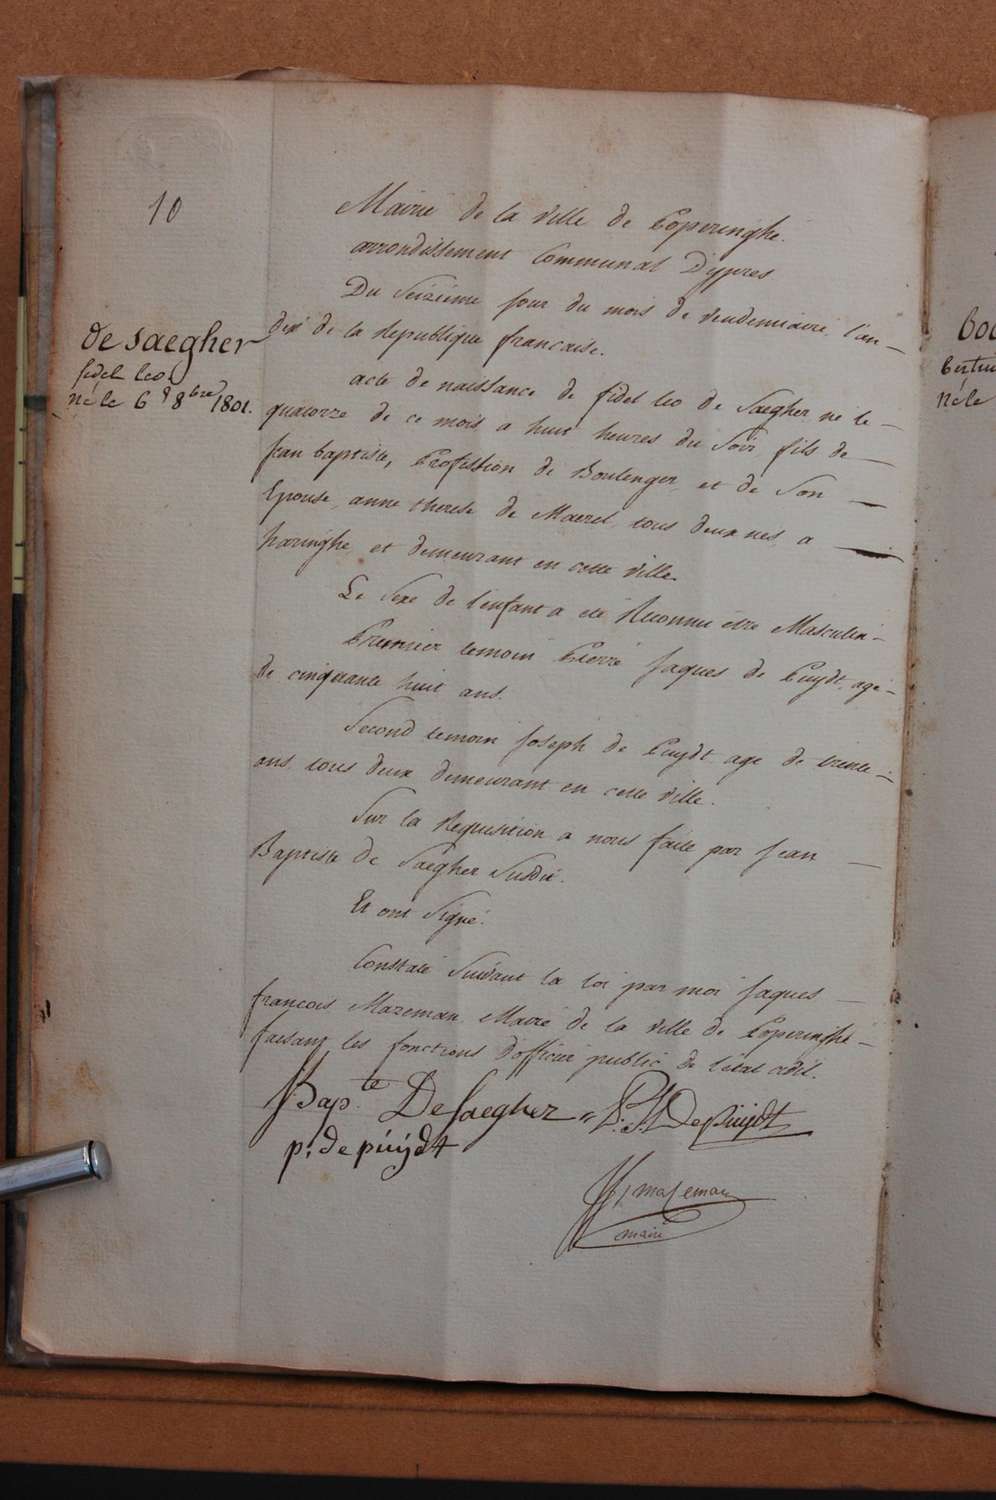 10
Mairie de la ville de Poperinghe.
arrondissement Communal D'ypres
Du Seizieme jour du mois de vendemiaire l'an —
dix de la Republique francaise.
de saegher
fidel leo.
né le 6 8bre 1801.
acte de naissance de fidel leo de Saegher né le —
quatorze de ce mois a huit heures du Soir, fils de —
jean baptiste, Profession de Boulenger, et de Son —
Epouse, anne therese de Maerel, tous deux nés a —
haringhe et demeurant en cette ville.
Le Sexe de l'enfant a eté Reconnu être Masculin -
Premier temoin Pierre Jaques de Puydt, agé -
de cinquante huit ans.
Second temoin Joseph de Puydt age de trente -
ans tous deux demeurant en cette ville.
Sur la Requisition a nous faite par jean —
Baptiste de Saegher Susdit.
Et ont Signé.
Constaté Suivant la loi par moi Jaques —
francois Mazeman Maire de la ville de Poperinghe -
faisant les fonctions d'officier public de l'etat civil.
J Bapte De Saegher P: J: De Puijdt
p: de púÿdt
JF mazeman
maire
boe
bertin
né le